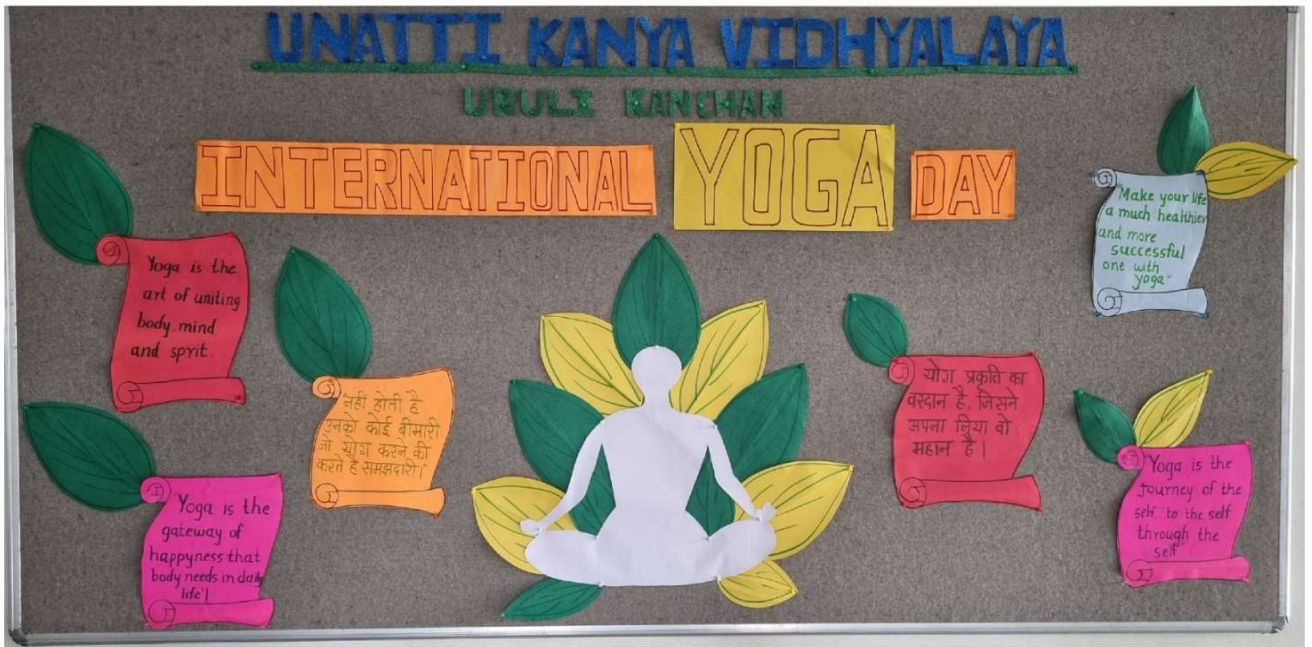 UNATTI KANYA VIDHYALAYA
URULI KANCHAN
INTERNATIONAL YOGA DAY
Yoga is the
art of uniting
body.mind
and sprit.
"Yoga is the
gateway of
happyness that
body needs in daily
life"!
"नही होती है
उनको कोई बीमारी
जो योग करने की
करते है समझदारी।"
योग प्रकृति का
वरदान है, जिसने
अपना लिया वो
महान है।
"Make your life
a much healthier
and more
successful
one with
yoga"
"Yoga is the
Journey of the
self, to the self
through the
self"